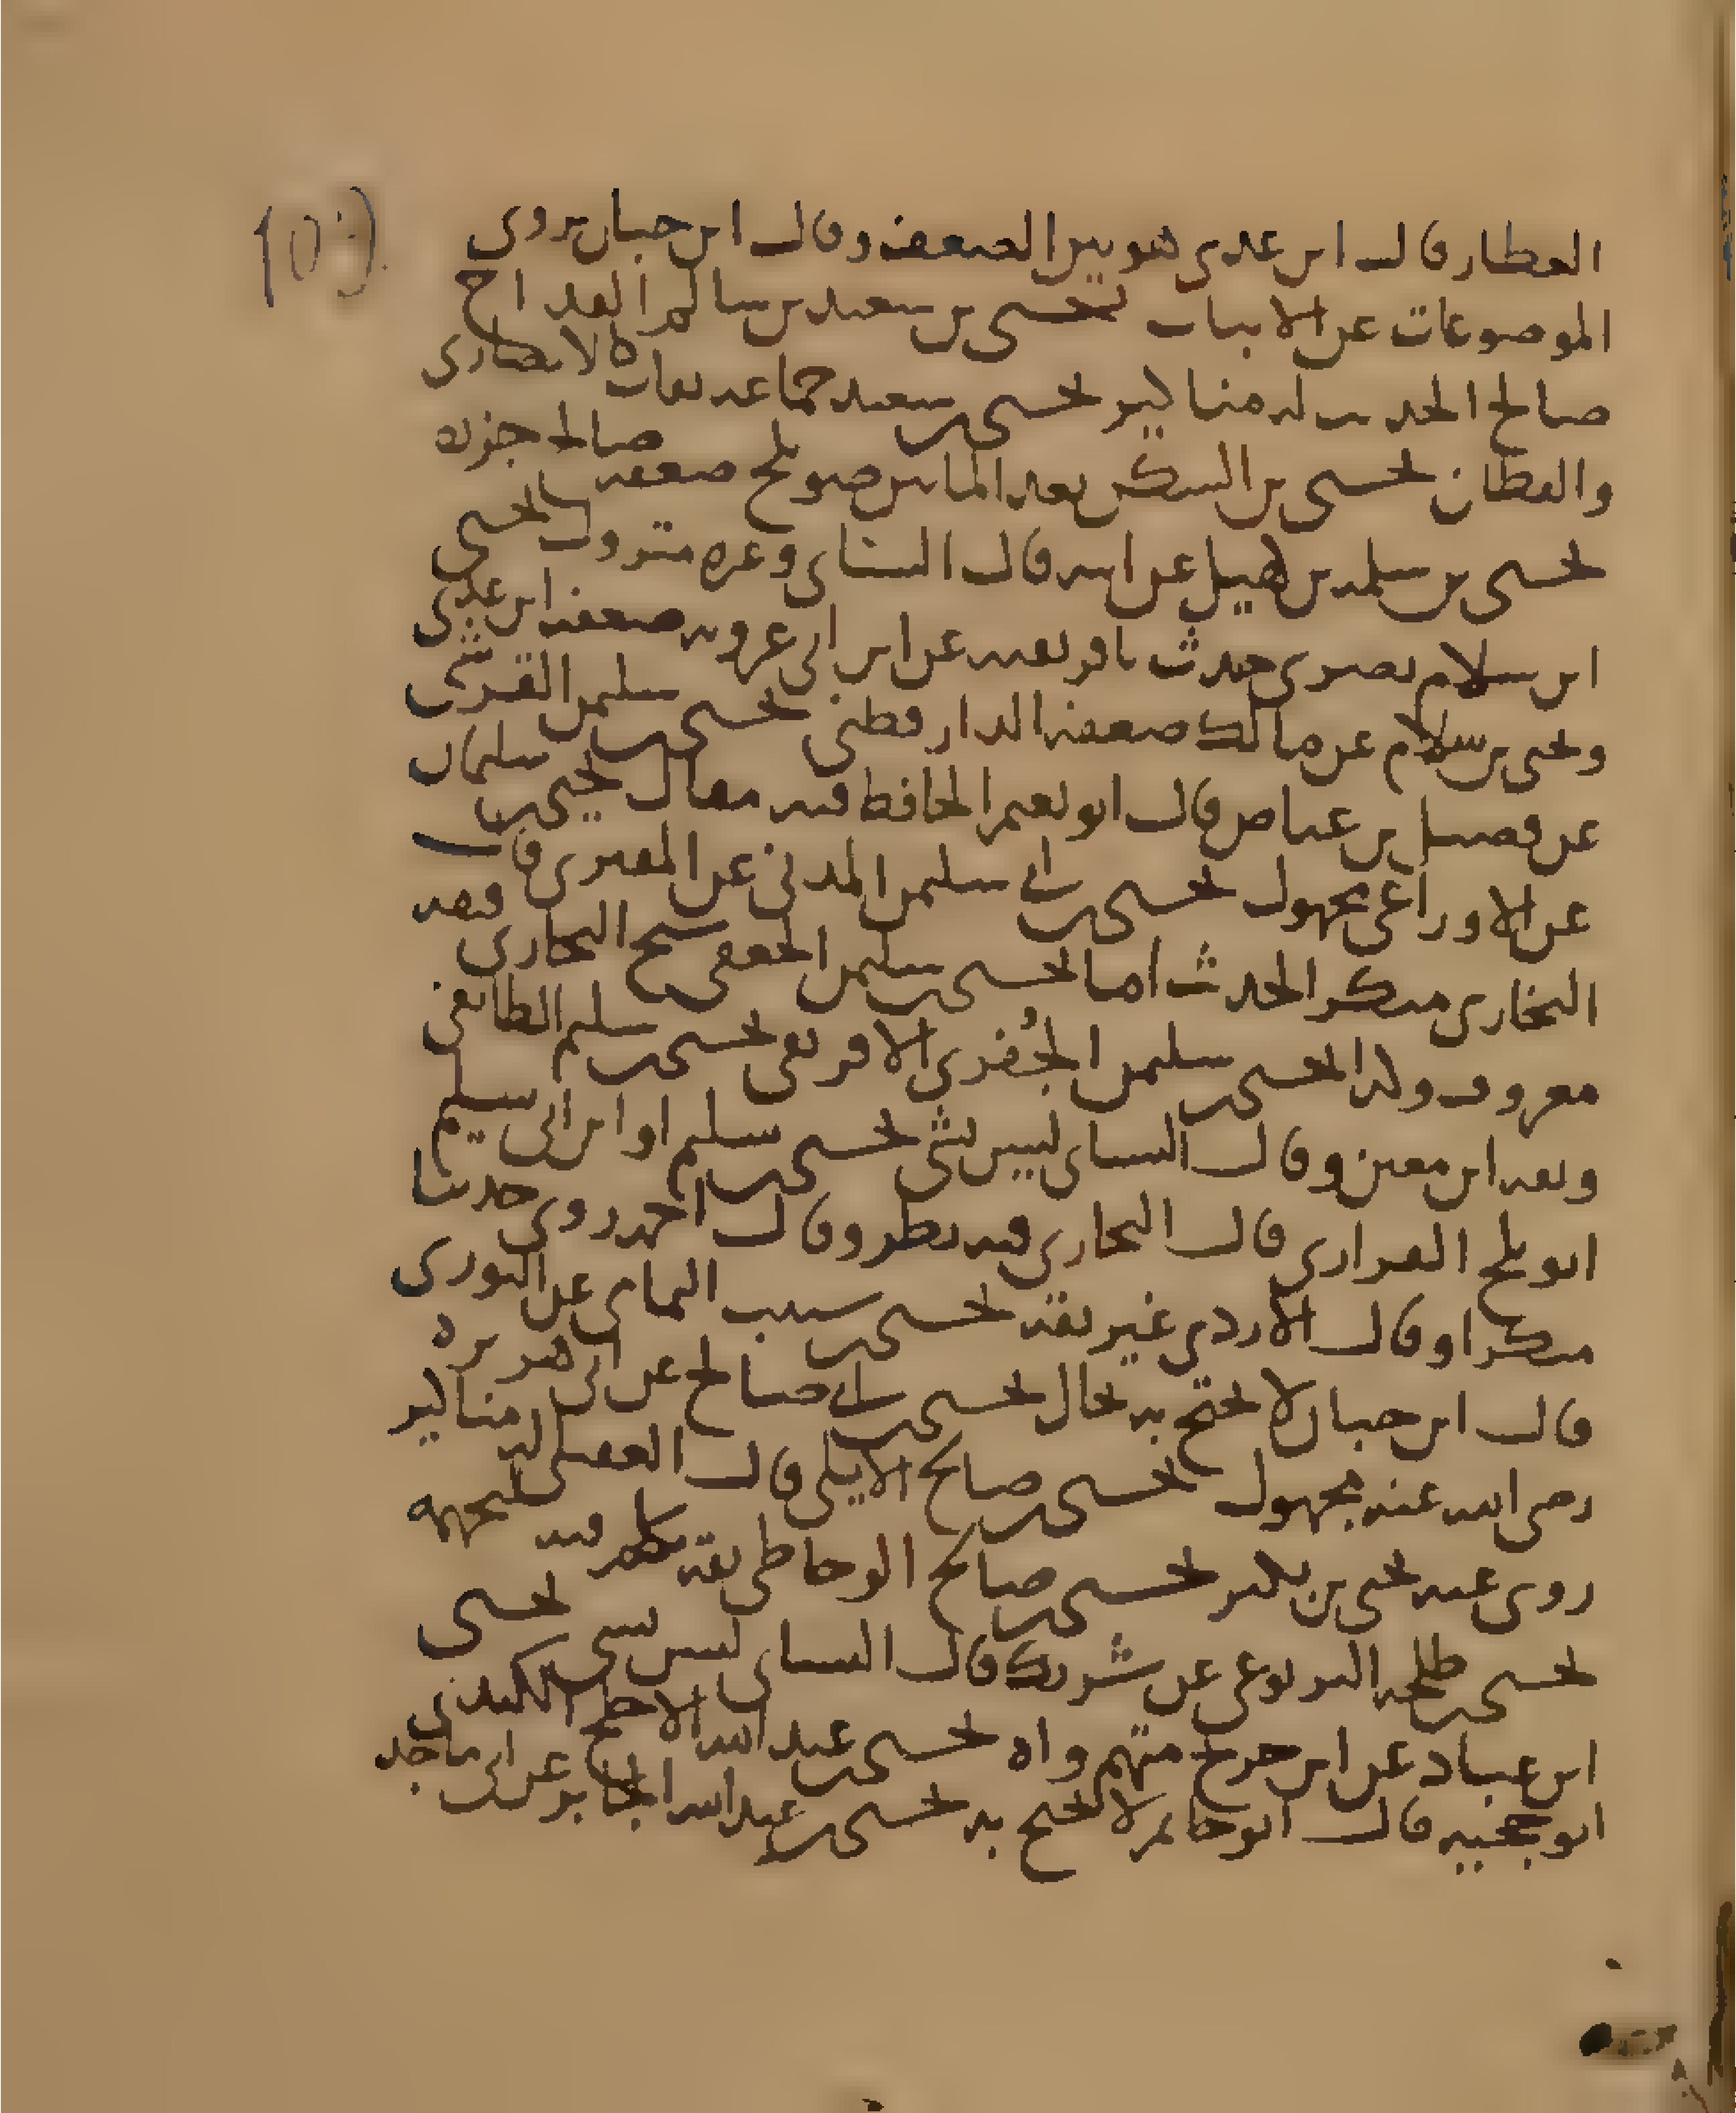 (١٥٠)
العطار قال ابن عدي هو بين الضعف وقال ابن حبان يروي
الموضوعات عن الاثبات يحيى بن سعيد بن سالم القداح
صالح الحديث له مناكير يحيى بن سعيد جماعة ثقات كالانصاري
والقطان يحيى بن السكن بعد المايتين صويلح ضعفه صالح جزره
يحيى بن سلمه بن كهيل عن ابيه قال النسائي وغيره متروك يحيى
ابن سلام بصري حدث بافريقيه عن ابن ابي عروبه ضعفه ابن عدي
ويحيى بن سلام عن مالك ضعفه الدارقطني يحيى بن سليمن القرشي
عن فضيل بن عياض قال ابو نعيم الحافظ فيه مقال يحيى بن سليمان
عن الاوزاعي مجهول يحيى بن ابي سليمن المدني عن المقبري قال
البخاري منكر الحديث اما يحيى بن سليمن الجعفي شيخ البخاري فقد
معروف وكذا يحيى بن سليمن الجُفري الافريقي يحيى بن سليم الطائفي
وثقه ابن معين وقال النسائي ليس بشي يحيى بن سليم او ابن ابي سليم
ابو بلج الفزاري قال البخاري فيه نظر وقال احمد روى حديثا
منكرا وقال الازدي غير ثقه يحيى بن شبيب اليماي عن الثوري
قال ابن حبان لا يحتج به بحال يحيى بن ابي صالح عن ابي هريره
رضي الله عنه مجهول يحيى بن صالح الايلي قال العقيلي له مناكير
روى عنه يحيى بن بكير يحيى بن صالح الوحاظي ثقه تكلم فيه لتجهمه
يحيى بن طلحه اليربوعي عن شريك قال النساي ليس بشي يحيى
ابن عباد عن ابن جريج متهم واه يحيى بن عبد الله الاجلح الكندي
ابو حجيه قال ابو حاتم لا يحتج به يحيى بن عبد الله الجابر عن ابي ماجد